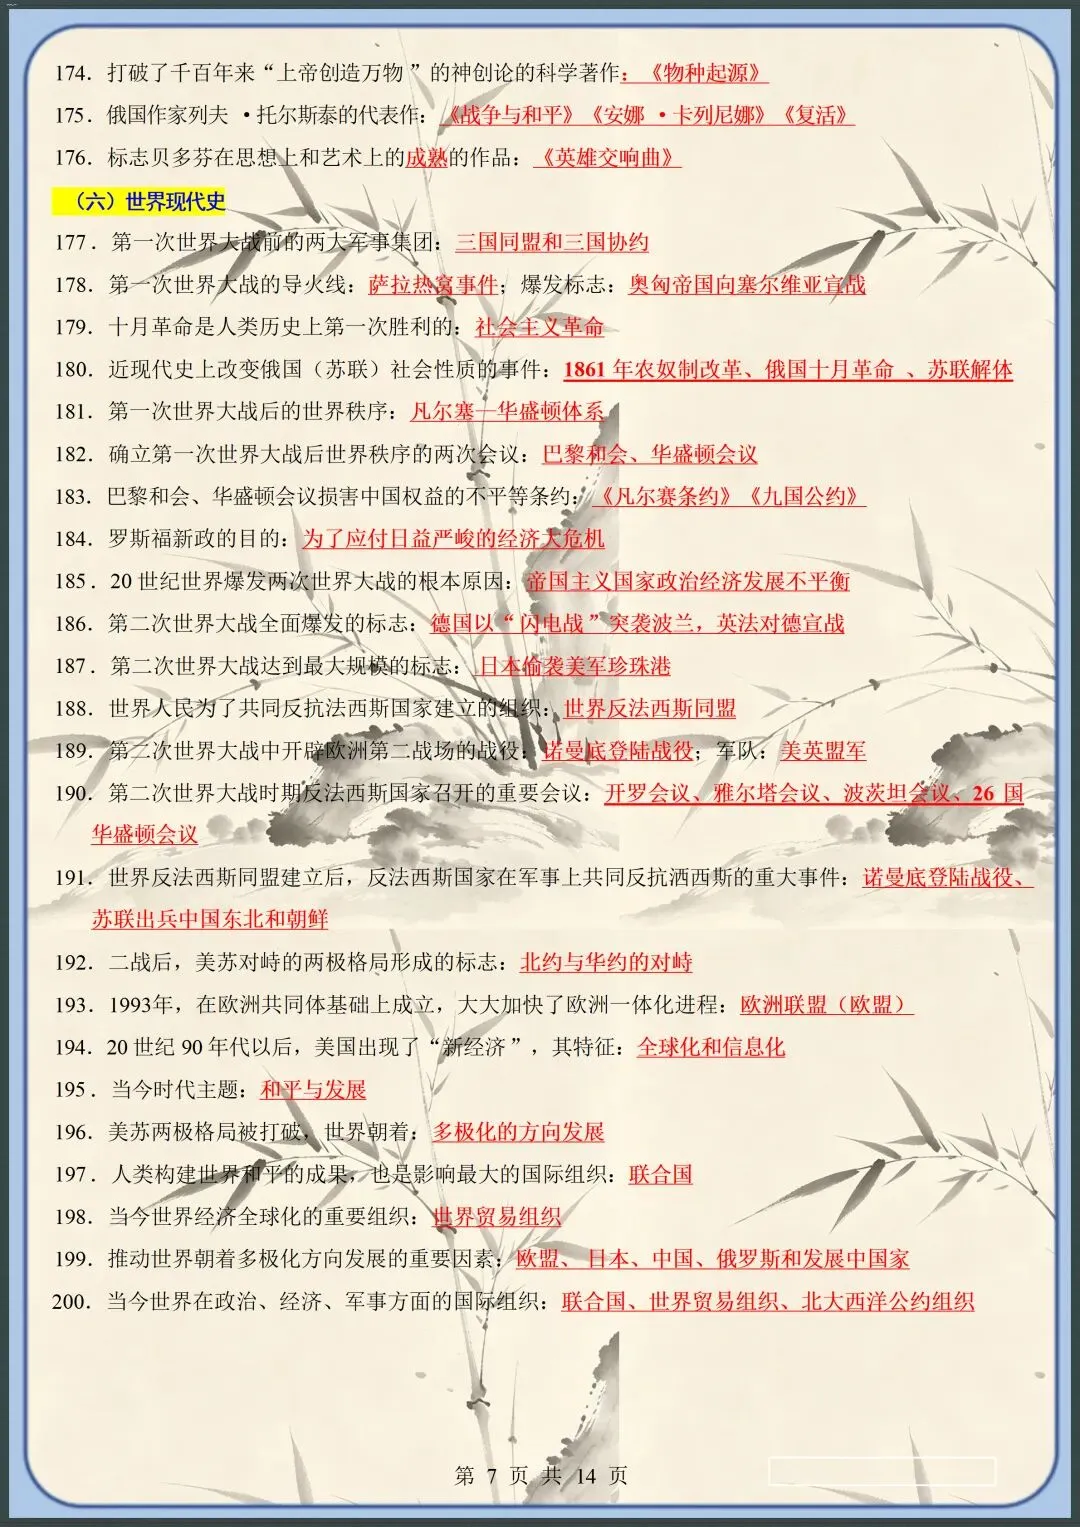 174．打破了千百年来“上帝创造万物 ”的神创论的科学著作：《物种起源》
175．俄国作家列夫 ·托尔斯泰的代表作：《战争与和平》《安娜 ·卡列尼娜》《复活》
176．标志贝多芬在思想上和艺术上的成熟的作品：《英雄交响曲》
（六）世界现代史
177．第一次世界大战前的两大军事集团：三国同盟和三国协约
178．第一次世界大战的导火线：萨拉热窝事件；爆发标志：奥匈帝国向塞尔维亚宣战
179．十月革命是人类历史上第一次胜利的：社会主义革命
180．近现代史上改变俄国（苏联）社会性质的事件：1861 年农奴制改革、俄国十月革命 、苏联解体
181．第一次世界大战后的世界秩序：凡尔塞—华盛顿体系
182．确立第一次世界大战后世界秩序的两次会议：巴黎和会、华盛顿会议
183．巴黎和会、华盛顿会议损害中国权益的不平等条约：《凡尔赛条约》《九国公约》
184．罗斯福新政的目的：为了应付日益严峻的经济大危机
185．20 世纪世界爆发两次世界大战的根本原因：帝国主义国家政治经济发展不平衡
186．第二次世界大战全面爆发的标志：德国以“ 闪电战 ”突袭波兰，英法对德宣战
187．第二次世界大战达到最大规模的标志：日本偷袭美军珍珠港
188．世界人民为了共同反抗法西斯国家建立的组织：世界反法西斯同盟
189．第二次世界大战中开辟欧洲第二战场的战役：诺曼底登陆战役；军队：美英盟军
190．第二次世界大战时期反法西斯国家召开的重要会议：开罗会议、雅尔塔会议、波茨坦会议、26 国
华盛顿会议
191．世界反法西斯同盟建立后，反法西斯国家在军事上共同反抗洒西斯的重大事件：诺曼底登陆战役、
苏联出兵中国东北和朝鲜
192．二战后，美苏对峙的两极格局形成的标志：北约与华约的对峙
193．1993年，在欧洲共同体基础上成立，大大加快了欧洲一体化进程：欧洲联盟（欧盟）
194．20 世纪 90 年代以后，美国出现了“新经济 ”，其特征：全球化和信息化
195．当今时代主题：和平与发展
196．美苏两极格局被打破，世界朝着：多极化的方向发展
197．人类构建世界和平的成果，也是影响最大的国际组织：联合国
198．当今世界经济全球化的重要组织：世界贸易组织
199．推动世界朝着多极化方向发展的重要因素：欧盟、 日本、中国、俄罗斯和发展中国家
200．当今世界在政治、经济、军事方面的国际组织：联合国、世界贸易组织、北大西洋公约组织
第 7 页 共 14 页